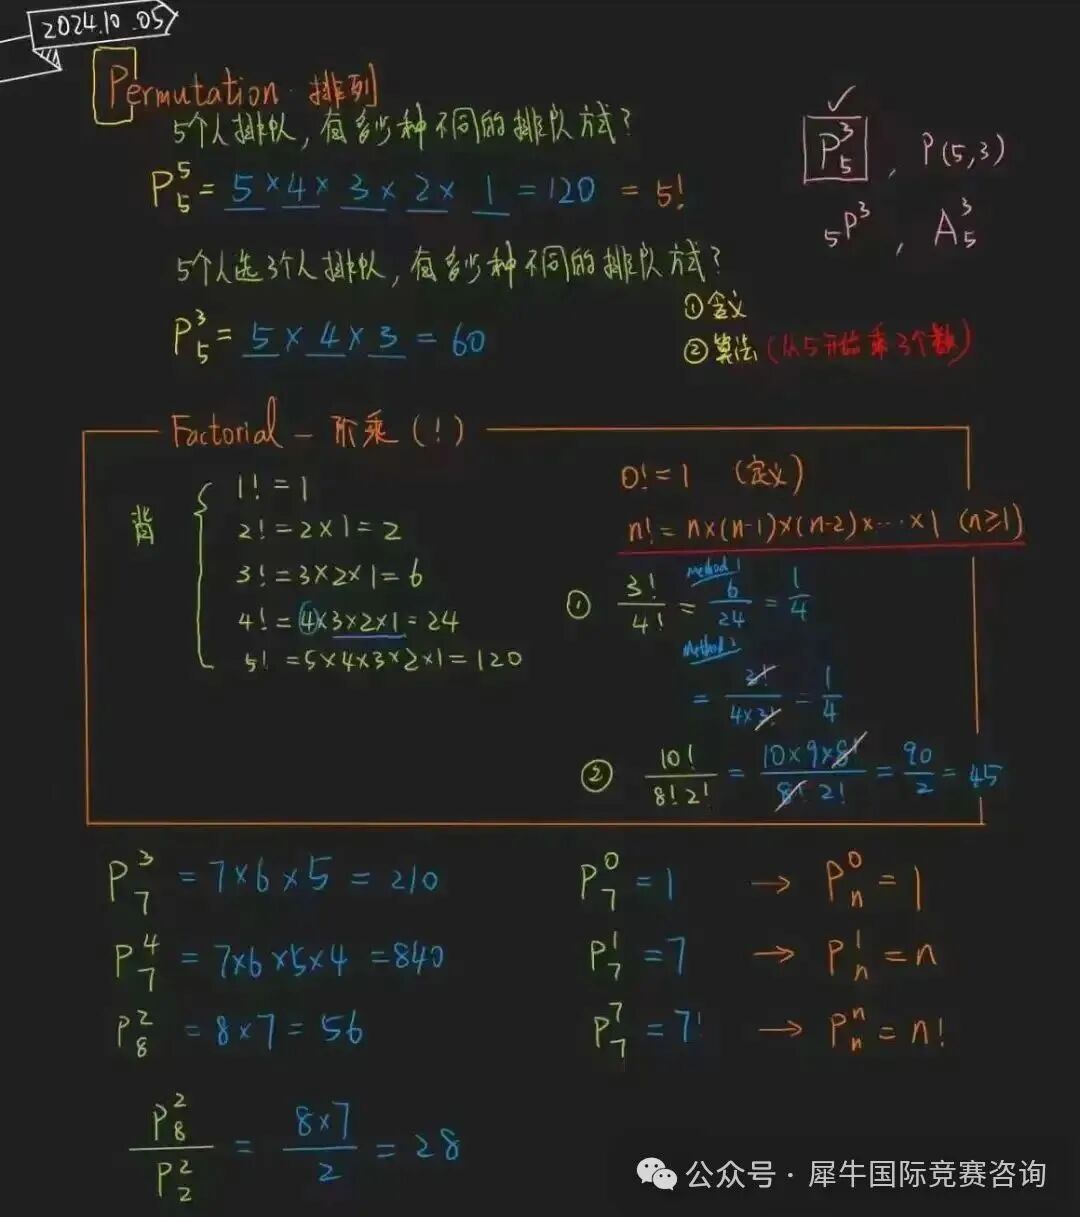 2024.10.05
Permutation 排列
5个人排队,有多少种不同的排队方式?
P₅⁵ = 5 × 4 × 3 × 2 × 1 = 120 = 5!
✓
P₅³ , P(5,3)
₅P³ , A₅³
5个人选3个人排队,有多少种不同的排队方式?
P₅³ = 5 × 4 × 3 = 60
①含义
②算法(从5开始乘3个数)
Factorial — 阶乘(!)
背
1! = 1
2! = 2×1 = 2
3! = 3×2×1 = 6
4! = 4×3×2×1 = 24
5! = 5×4×3×2×1 = 120
0! = 1 (定义)
n! = n×(n-1)×(n-2)×⋯×1 (n≥1)
Method 1
① 3!/4! = 6/24 = 1/4
Method 2
= 3!/4×3! = 1/4
② 10!/8!2! = 10×9×8!/8!2! = 90/2 = 45
P₇³ = 7×6×5 = 210
P₇⁴ = 7×6×5×4 = 840
P₈² = 8×7 = 56
P₈²/P₂² = 8×7/2 = 28
P₇⁰ = 1 → Pₙ⁰ = 1
P₇¹ = 7 → Pₙ¹ = n
P₇⁷ = 7! → Pₙⁿ = n!
公众号·犀牛国际竞赛咨询